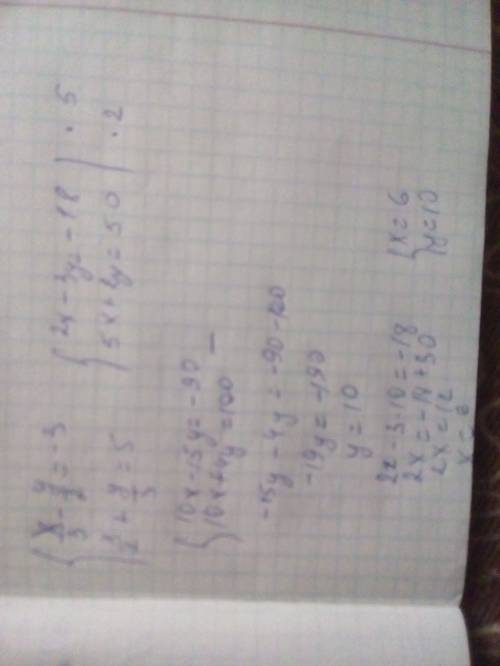 { x/3 - y/2 = -3
x/2 + y/5 = 5
{ 2x - 3y = -18 | · 5
5x + 2y = 50 | · 2
{ 10x - 15y = -90
10x + 4y = 100 —
-15y - 4y = -90 - 100
-19y = -190
y = 10
2x - 3·10 = -18
2x = -18 + 30
2x = 12
x = 6
{ x = 6
y = 10